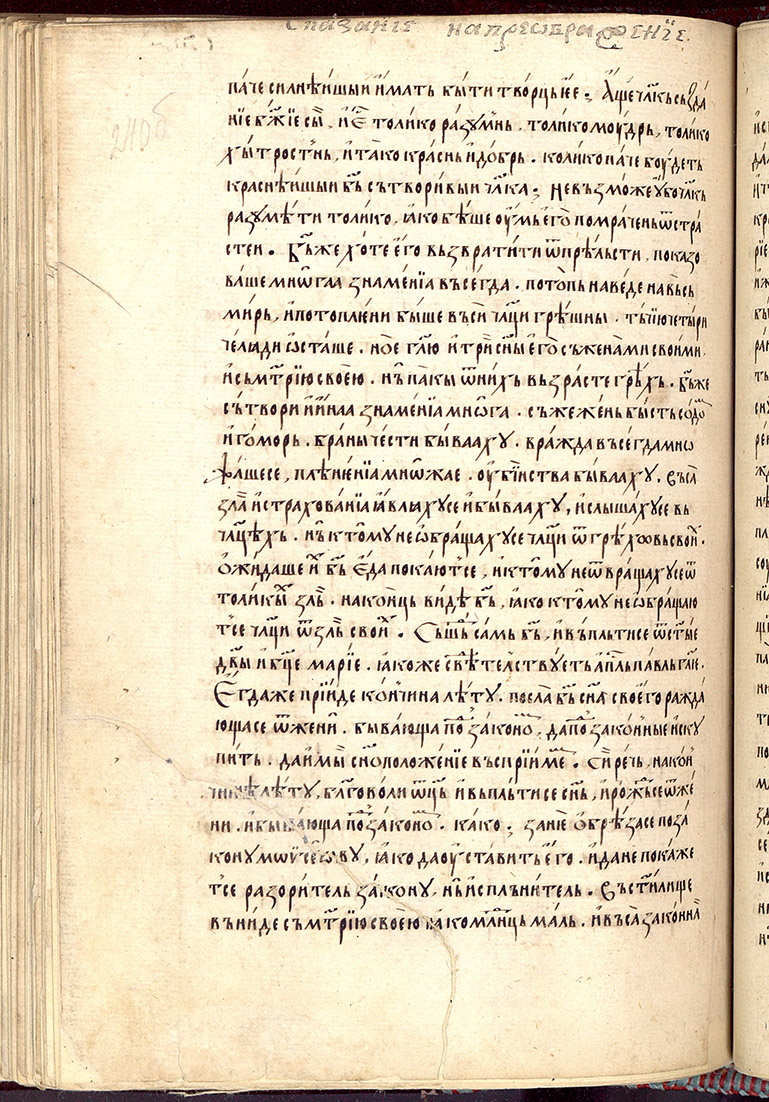 Сказанїе на преѡбраженїе.
240б
паче силнѣишый и҆мать быти творць і҆е҆е. Аще чл҃кь създа
нїе б҃жїе сы̀, и҆ є҆ толико разꙋмнь, толико моудрь, толико
хытростнь, и҆ тако краснь и҆ добрь. колико паче боудеть
краснѣишый б҃ь сътворивый чл҃ка; не възможе ѹ҆бо чл҃кь
разꙋмѣти толико, ꙗ҆ко бѣше оумь е҆го помрачень ѿ стра
стеи. Б҃ь же хоте е҆го възвратити ѿ прѣльсти, показо
ваше мнѡгаа знаменїа въсегда. потопь наведе на въсь
мирь, и҆ потоплени быше въси чл҃ци грѣшны. тъчїю четыри
челꙗди ѡсташе. ное гл҃ю и҆ три сн҃ы е҆го съ женами своими,
и҆ съмтрїю своею. нь пакы ѿ них възрасте грѣхь. б҃ь же
сътвори и҆ и҆на знаменїа многа. съжежень бысть содо
и҆ гоморь. брани чести бываахꙋ. вражда въсегда мнѡ
жаше се, плѣненїа мнѡжае. оубїиства бываахꙋ. Въса
зла и҆ страхованїа ꙗ҆влꙗхꙋ се и҆ бываахꙋ, и҆ слышахꙋ се вь
чл҃цѣхь. нь к томꙋ не ѡбращахꙋ се чл҃ци ѿ грѣхѡвь свои.
Ожидаше и҆х б҃ь еда покают се, и҆ к томꙋ не ѿвращахꙋ се ѿ
толикых зль. наконць видѣ б҃ь, ꙗ҆ко к томꙋ не ѡбращаю
т се чл҃ци ѿ зль свои. Сьшь самь б҃ь, и҆ въплъти се ѿ ст҃ые
дв҃ы и҆ бц҃е марїе. ꙗ҆коже свѣтелствꙋеть а҆п҃ль павль гл҃ѥ.
Егда же прїиде кончина лѣтꙋ. посла б҃ь сн҃а своего ражда
юща се ѿ жени. бывающа по законо, да по законные искꙋ
пить. да и҆мы сн҃оположенїе въспрїиме. Сирѣчь, на кон
чинѣ лѣтꙋ, благоволи ѿц҃ь и҆ въплъти се сн҃ь, и҆ рож се ѿ же
ни. и҆ бывающа по законо. како; зане ѡбрѣза се по за
конꙋ мѡѵсеѡвꙋ, ꙗ҆ко да оуставить е҆го. и҆ да не покаже
т се разоритель законꙋ, нь и҆сплънитель. Въ ст҃илище
въниде съ мтрїю своею ꙗ҆ко мл҃днць маль. и҆ въса законна